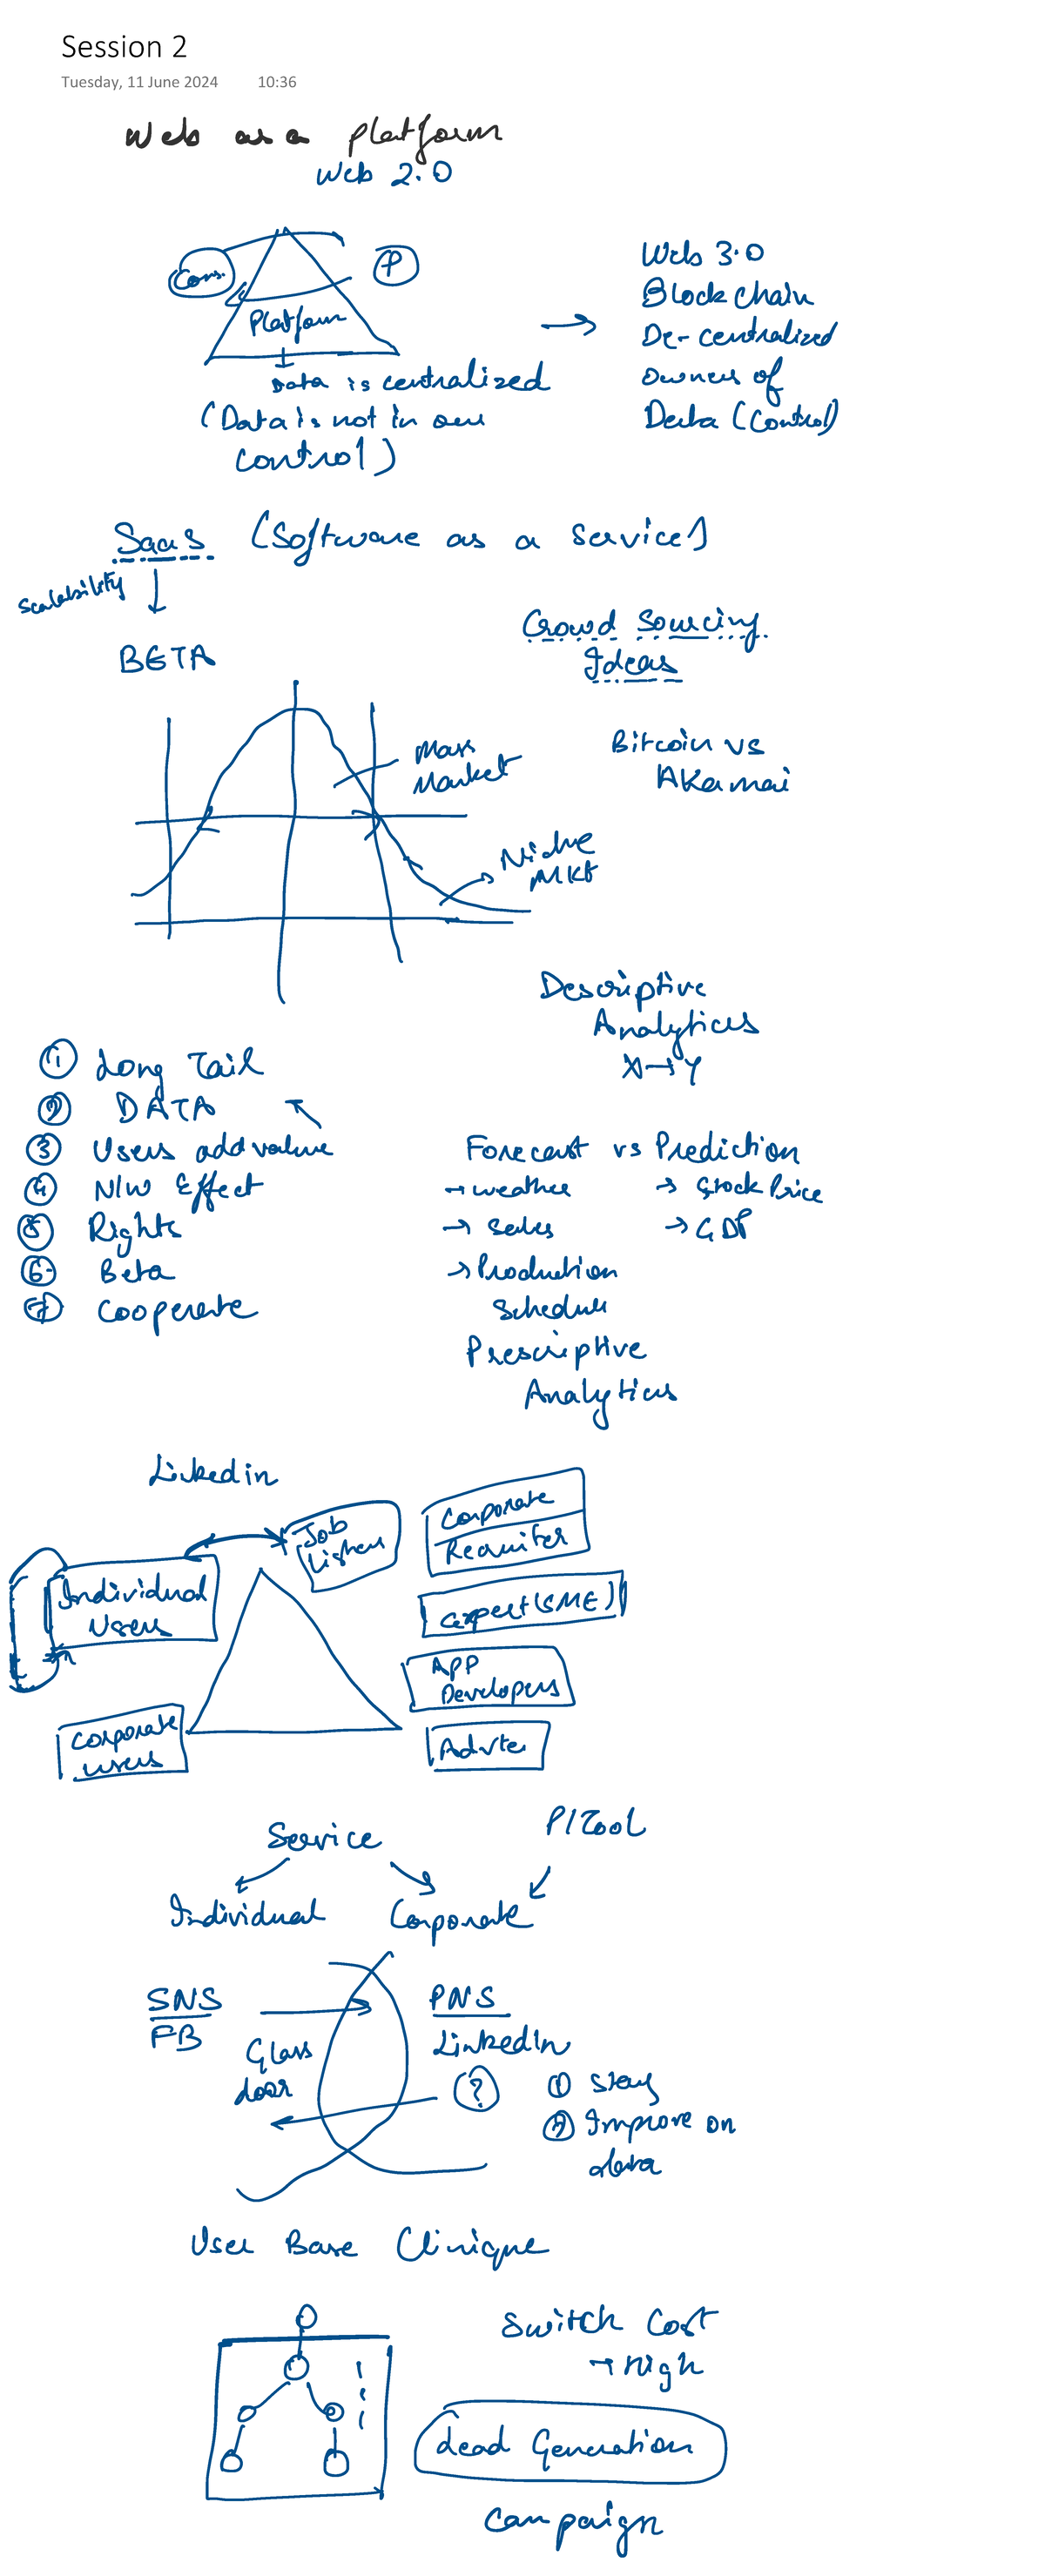 Session 2
Tuesday, 11 June 2024 10:36
Web as a Platform
Web 2.0
Cons.
P
Platform
Data is centralized
(Data is not in our
control)
Web 3.0
BlockChain
De-centralized
Owners of
Data (Control)
SaaS (Software as a Service)
Scalability
BETA
Crowd Sourcing
Ideas
Mass
Market
Bitcoin vs
Akamai
Niche
Mkt
Descriptive
Analytics
X→Y
① Long Tail
② DATA
③ Users add value
④ N/W Effect
⑤ Rights
⑥ Beta
⑦ Cooperate
Forecast vs Prediction
→ weather → Stock Price
→ Sales → GDP
→ Production
Schedule
Prescriptive
Analytics
Linkedin
Job
Listers
Individual
Users
Corporate
users
Corporate
Recruiter
Expert (SME)
APP
Developers
Advter
Service
P/Tool
Individual Corporate
SNS
FB
Glass
door
PNS
LinkedIn
?
① Stay
② Improve on
data
User Base Clinique
Switch Cost
→ High
Lead Generation
Campaign